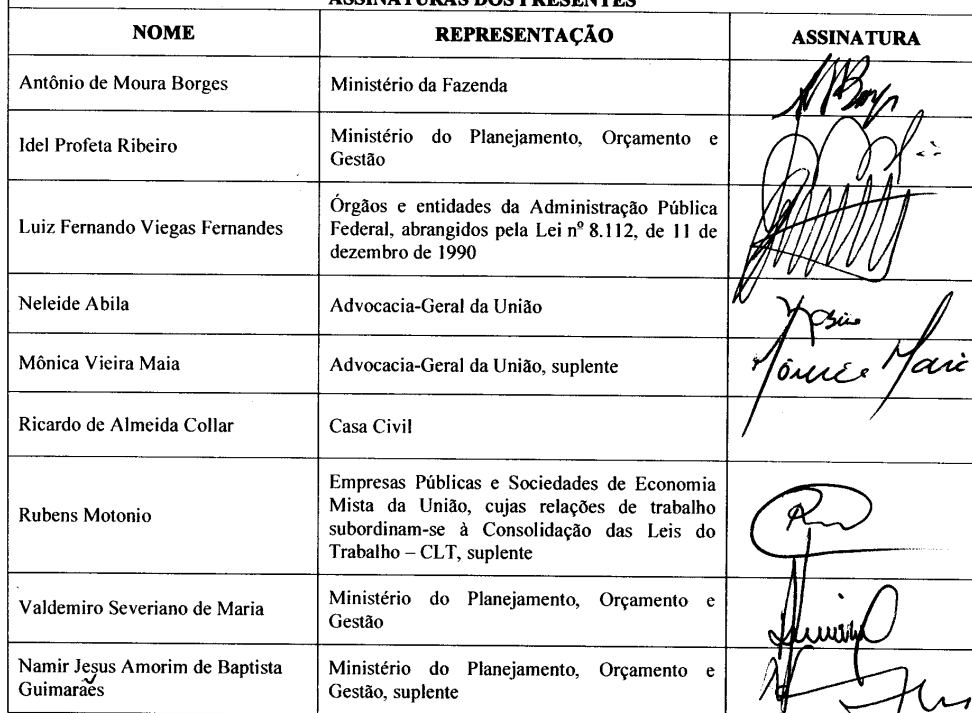 ASSINATURAS DOS PRESENTES
NOME REPRESENTAÇÃO ASSINATURA
Antônio de Moura Borges Ministério da Fazenda
Idel Profeta Ribeiro Ministério do Planejamento, Orçamento e
Gestão
Luiz Fernando Viegas Fernandes Órgãos e entidades da Administração Pública
Federal, abrangidos pela Lei nº 8.112, de 11 de
dezembro de 1990
Neleide Abila Advocacia-Geral da União
Mônica Vieira Maia Advocacia-Geral da União, suplente Mônica Maia
Ricardo de Almeida Collar Casa Civil
Rubens Motonio Empresas Públicas e Sociedades de Economia
Mista da União, cujas relações de trabalho
subordinam-se à Consolidação das Leis do
Trabalho – CLT, suplente
Valdemiro Severiano de Maria Ministério do Planejamento, Orçamento e
Gestão
Namir Jesus Amorim de Baptista Ministério do Planejamento, Orçamento e
Guimarães Gestão, suplente